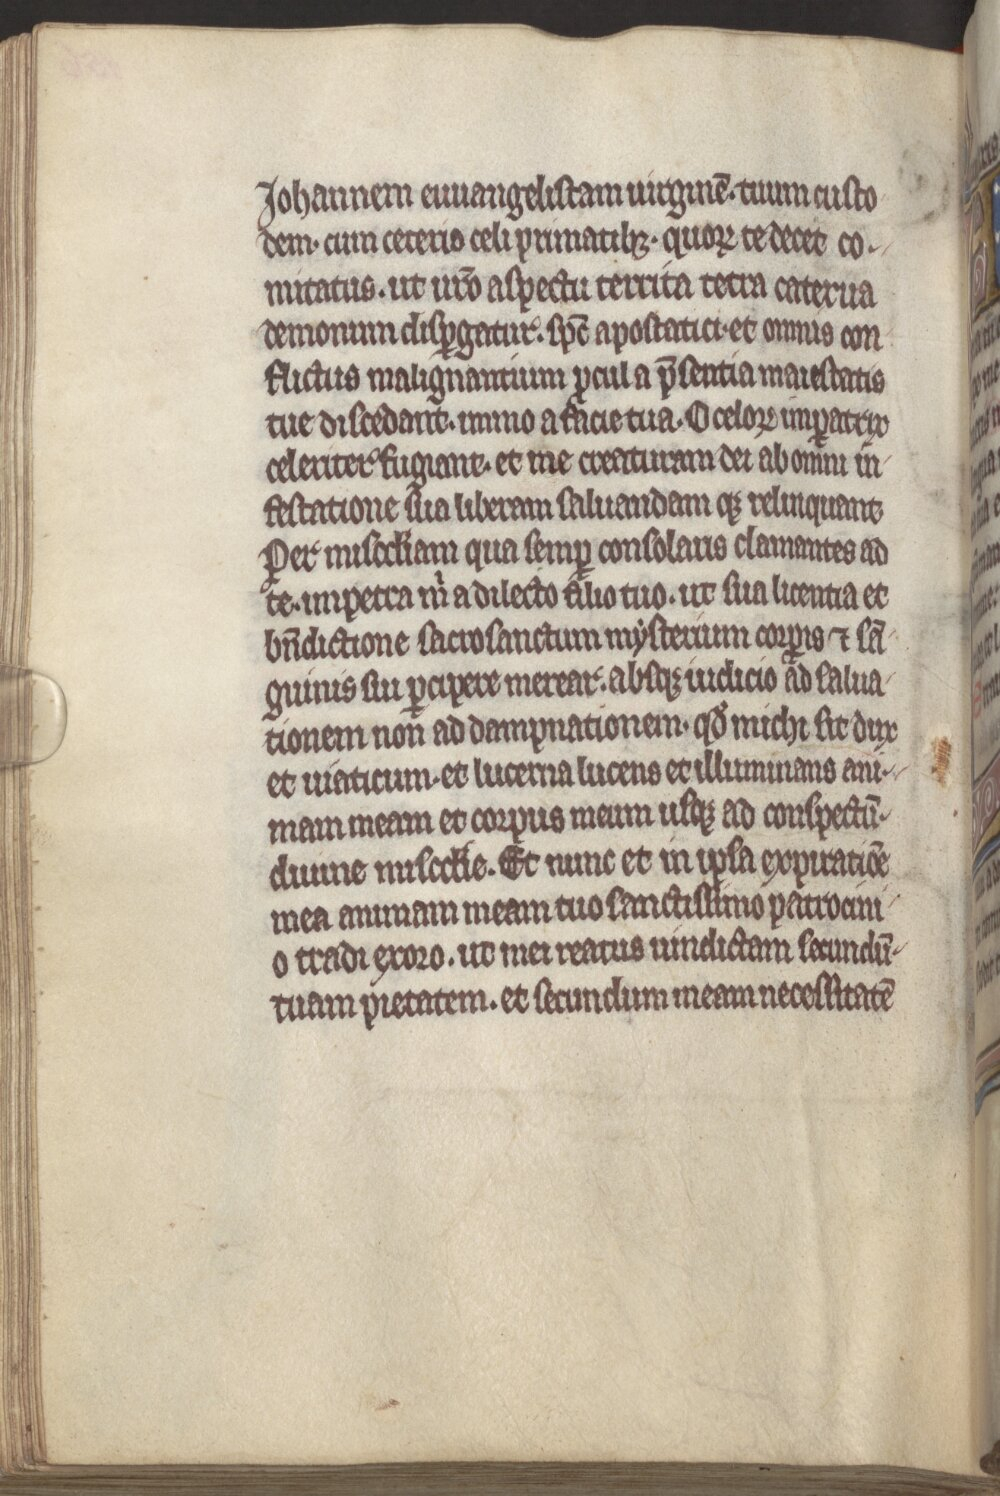 Johannem euuangelistam uirginē. tuum custo
dem. cum ceteris celi primatibꝫ. quoꝝ te decet co-
mitatus. ut ur̄o aspectu territa tetra caterua
demonum dispergatur. sp̄c apostatici. et omnis con
flictus malignantium ꝓcul a p̄sentia maiestatis
tue discedant. immo a facie tua. O celoꝝ imꝑatrix
celeriter fugiant. et me creaturam dei ab omni in
festatione sua liberam saluandam qꝫ relinquant
Per misc̄diam qua semꝑ consolaris clamantes ad
te. impetra m̄ a dilecto filio tuo. ut sua licentia et
bn̄dictione sacrosanctum mysterium corꝑis ⁊ sā
guinis sui ꝑcipere merear. absqꝫ iudicio ad salua
tionem non ad dampnationem. qd̄ michi sit dux
et uiaticum. et lucerna lucens et illuminans ani-
mam meam et corpus meum usqꝫ ad conspectū
diuine misc̄die. Et nunc et in ipsa expiratiōe
mea animam meam tuo sanctissimo patrocini
o tradi exoro. ut mei reatus uindictam secundū
tuam pietatem. et secundum meam necessitatē